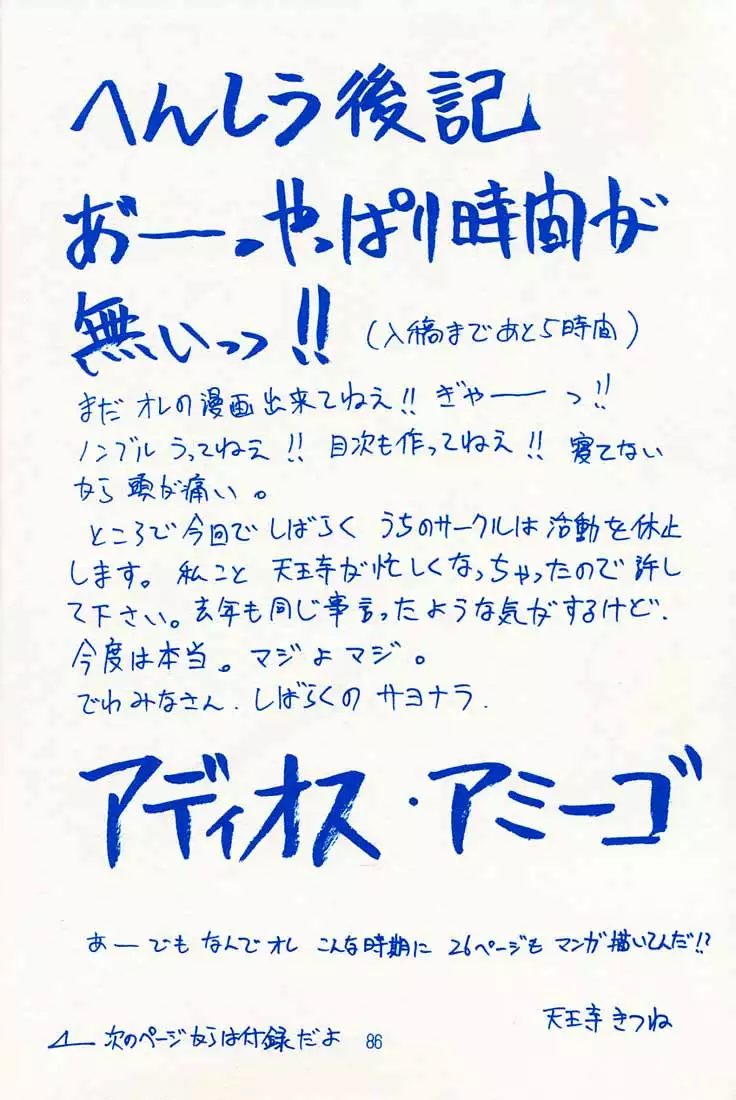 へんしう後記
あ゛ーっやっぱり時間が
無いっっ!!（入稿まであと5時間）
まだオレの漫画出来てねえ!! ぎゃーーっ!!
ノンブルうってねえ!! 目次も作ってねえ!! 寝てない
から頭が痛い。
ところで今回でしばらく うちのサークルは活動を休止
します。私こと 天王寺が忙しくなっちゃったので許し
て下さい。去年も同じ事言ったような気がするけど.
今度は本当。マジよマジ。
でわみなさん. しばらくの サヨナラ.
アディオス・アミーゴ
あーでも なんでオレ こんな時期に 26ページも マンガ描いてんだ!?
天王寺きつね
次のページからは付録だよ 86